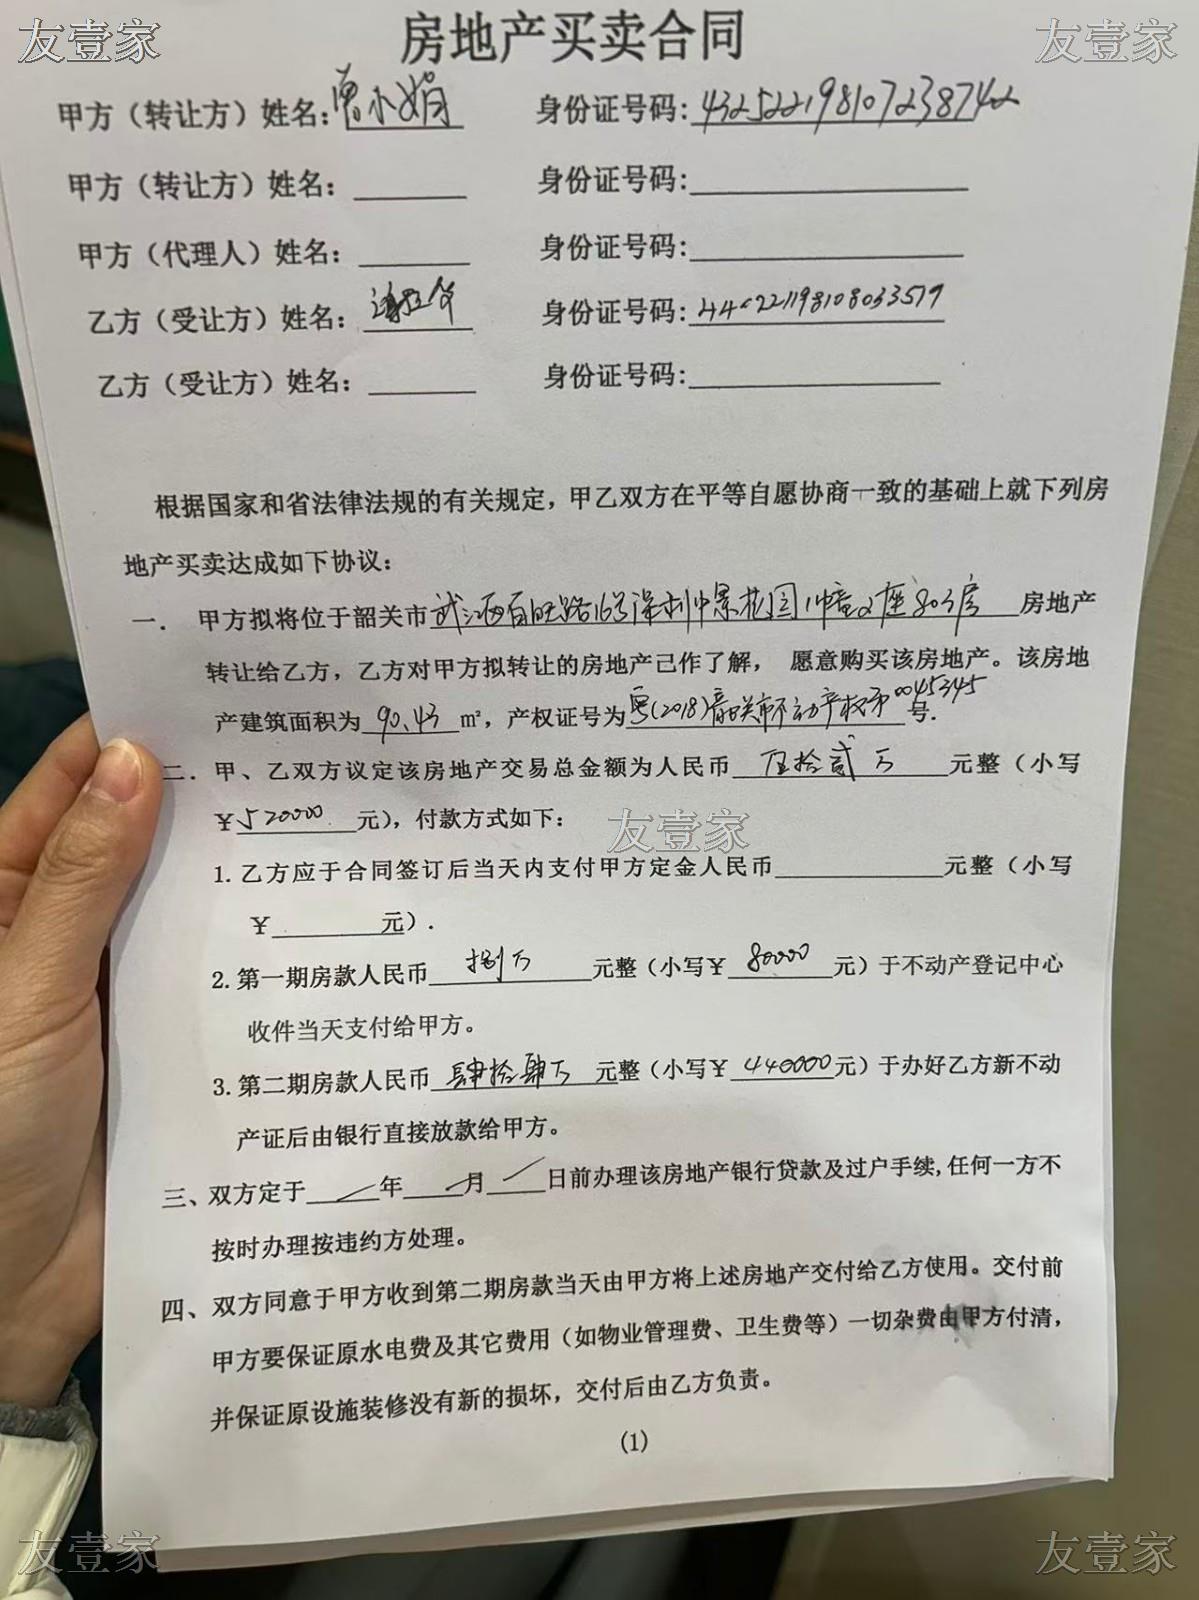 友壹家 友壹家
房地产买卖合同
甲方（转让方）姓名：曾小娟 身份证号码：432522198107238742
甲方（转让方）姓名： 身份证号码：
甲方（代理人）姓名： 身份证号码：
乙方（受让方）姓名： 身份证号码：
乙方（受让方）姓名： 身份证号码：
根据国家和省法律法规的有关规定，甲乙双方在平等自愿协商一致的基础上就下列房
地产买卖达成如下协议：
一． 甲方拟将位于韶关市武江西百旺路16号 中景花园 座803房 房地产
转让给乙方，乙方对甲方拟转让的房地产己作了解， 愿意购买该房地产。该房地
产建筑面积为90.43㎡，产权证号为粤(2018)韶关市不动产权第0045345号.
二．甲、乙双方议定该房地产交易总金额为人民币 伍拾贰万 元整（小写
￥520000.元），付款方式如下：
友壹家
1.乙方应于合同签订后当天内支付甲方定金人民币 元整（小写
￥ 元）.
2.第一期房款人民币 捌万 元整（小写￥ 80000 元）于不动产登记中心
收件当天支付给甲方。
3.第二期房款人民币 肆拾肆万 元整（小写￥ 440000元）于办好乙方新不动
产证后由银行直接放款给甲方。
三、双方定于 年 月 日前办理该房地产银行贷款及过户手续,任何一方不
按时办理按违约方处理。
四、双方同意于甲方收到第二期房款当天由甲方将上述房地产交付给乙方使用。交付前
甲方要保证原水电费及其它费用（如物业管理费、卫生费等）一切杂费由甲方付清，
并保证原设施装修没有新的损坏，交付后由乙方负责。
(1)
友壹家 友壹家